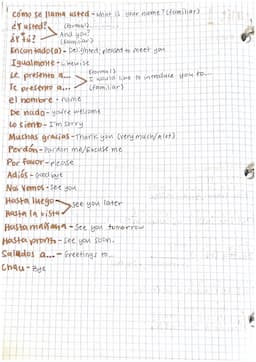 Cómo se llama usted - what is your name? (familiar)
¿Y usted? (formal)
And you?
¿Y tú? (familiar)
Encantado(a) - Delighted; pleased to meet you
Igualmente - likewise
Le presento a... (formal)
I would like to introduce you to...
Te presento a... (familiar)
el nombre - name
De nada - you're welcome
Lo siento - I'm sorry
Muchas gracias - Thank you (very much/a lot)
Perdón - Pardon me/Excuse me
Por favor - please
Adiós - Goodbye
Nos vemos - see you
Hasta luego
see you later
Hasta la vista
Hasta mañana - See you tomorrow
Hasta pronto - See you soon.
Saludos a... - Greetings to...
Chau - Bye